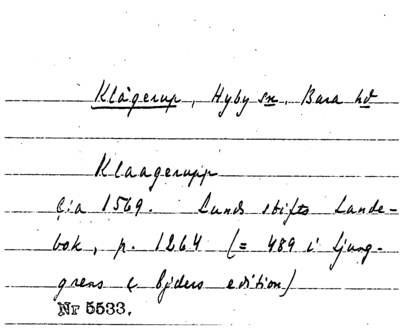 Klågerup, Hyby sn, Bara hd
Klaagerupp
C:a 1569. Lunds stifts Lande-
bok, p. 1264 (= 489 i Ljung-
grens & Ejders edition)
Nr 5533.